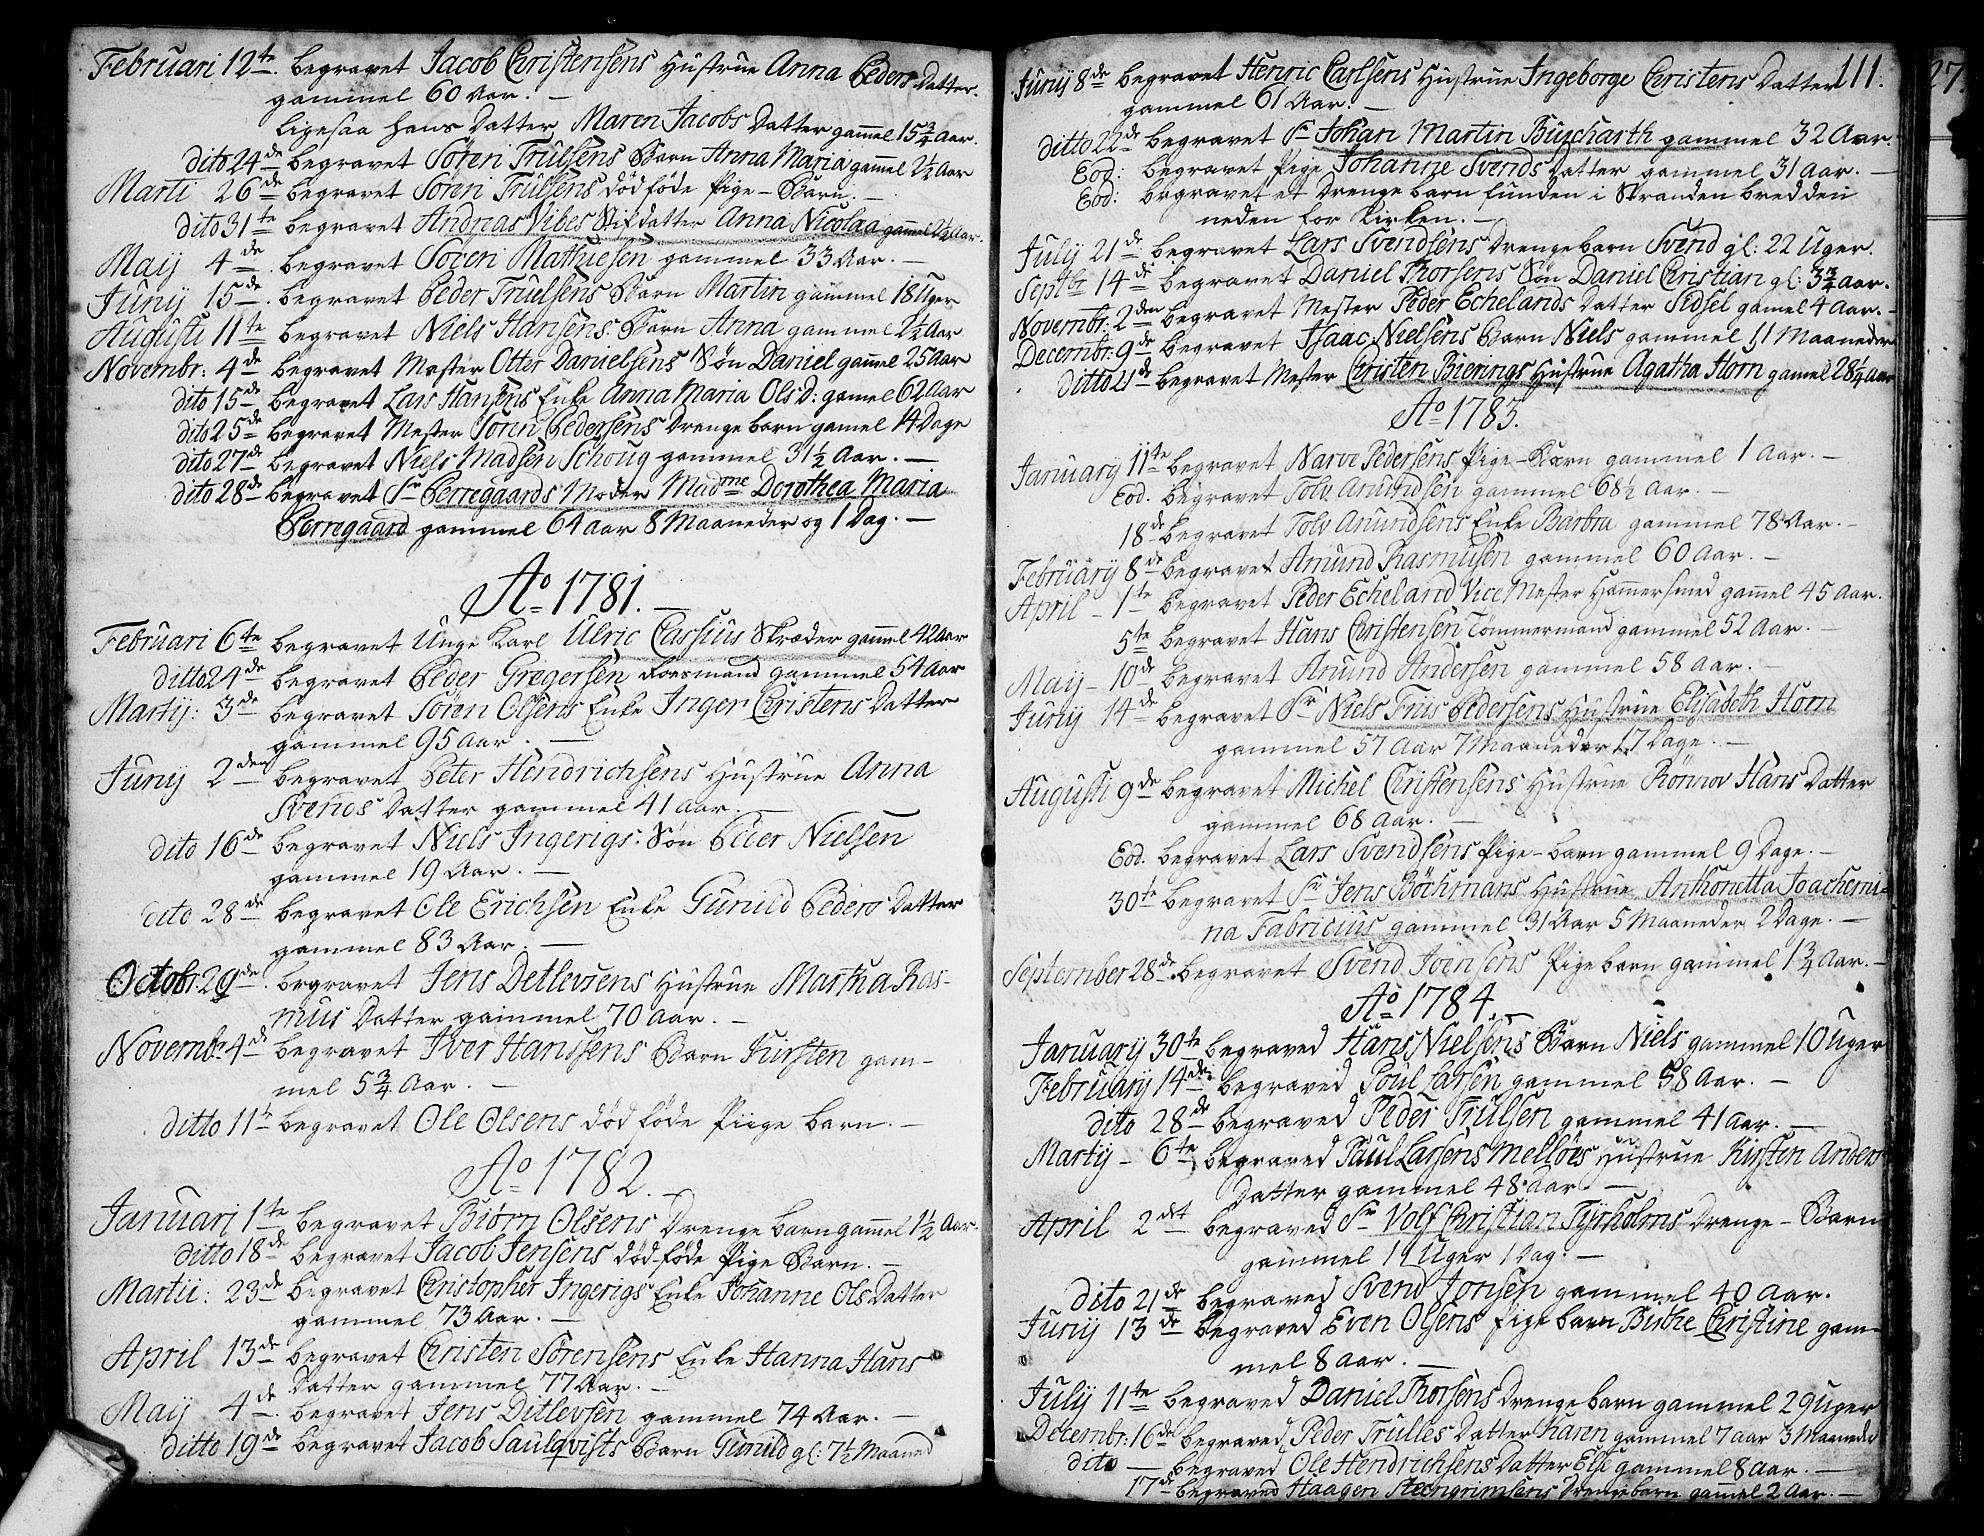 Februari 12te begravet Jacob Christensens Hustrue Anna Peders Datter
gammel 60 Aar. —
Ligesaa hans Datter Maren Jacobs Datter gammel 15¾ Aar.
dito 24de begravet Sören Trulsens Barn Anna Maria gammel 2½ Aar
Marti 26de begravet Sören Trulsens dödföde Pige-Barn. —
dito 31te begravet Andreas Vibes Stifdatter Anna Nicolaa gammel 2½ Aar.
Maij 4de begravet Soren Mathiesen gammel 33 Aar. —
Junij 15de begravet Peder Truelsens Barn Martin gammel 18 Uger
Augusti 11te begravet Niels Hansens Barn Anna gammel 2½ Aar
Novembr: 4de begravet Mester Otter Danielsens Sön Daniel gammel 25 Aar
dito 15de begravet Lars Hansens Enke Anna Maria Ols D: gamel 62 Aar
dito 25de begravet Mester Sören Pedersens Drengebarn gamel 14 Dage
dito 27de begravet Niels Madsen Schoug gammel 31½ Aar. —
dito 28de begravet Sr Perregaards Moder Madme Dorothea Maria
Perregaard gammel 64 aar 8 Maaneder og 1 Dag. —
Ao 1781. —
Februari 6te begravet Unge Karl Ulric Cassius Skræder gammel 42 Aar
ditto 24de begravet Peder Gregersen Roersmand gammel 54 Aar
Martij: 3de begravet Sören Olsens Enke Inger Christens Datter
gammel 95 Aar. —
Junij 2den begravet Peter Hendrichsens Hustrue Anna
Svends Datter gammel 41 aar. —
dito 16de begravet Niels Ingerigs: Sön Peder Nielsen
gammel 19 Aar. —
dito 28de begravet Ole Erichsen Enke Gunild Peders Datter
gammel 83 Aar. —
Octobr: 29de begravet Jens Detlevsens Hustrue Martha Ras-
mus Datter gammel 70 Aar. —
Novembr 4de begravet Iver Hanssens Barn Kirsten gam-
mel 5¾ Aar. —
ditto 11te begravet Ole Olsens dödföde Piige barn. —
Ao 1782. —
Januari 1te begravet Biörn Olsens Drenge barn gammel 1½ Aar.
ditto 18de begravet Jacob Jensens död-föde Pige Barn. —
Martii: 23de begravet Christopher Ingerigs Enke Johanne Ols Datter
gammel 73 Aar. —
April 13de begravet Christen Sörensens Enke Hanna Hans
Datter gammel 77 Aar. —
Maij 4de begravet Jens Ditlevsen gammel 74 Aar. —
ditto 19de begravet Jacob Saulqvists Barn Gunild gl: 7½ Maaned
111.
Junij 8de begravet Henric Carlsens Hustrue Ingeborge Christens Datter
gammel 61 Aar. —
ditto 22de begravet Sr Johan Martin Buycharth gammel 32 Aar.
Eod: begravet Pige Johanne Svends Datter gammel 31 Aar. —
Eod: begravet et Drenge barn funden i Stranden bredden
neden for Kirken. —
July 21de begravet Lars Svendsens Drengebarn Svend gl: 22 Uger.
Septbr 14de begravet Daniel Thorsens Sön Daniel Christian gl: 3¾ aar.
Novembr: 2den begravet Mester Peder Echelands Datter Sidsel gamel 4 aar. —
Decembr: 9de begravet Isaac Nielsens Barn Niels gammel 11 Maaneder
ditto 21de begravet Mester Christen Bierings Hustrue Agatha Horn gamel 28¼ aar
Ao 1783.
January 11te begravet Narve Pedersens Pige-Barn gammel 1 Aar. —
Eod. begravet Tolv Amundsen gammel 68½ Aar. —
18de begravet Tolv Amundsens Enke Barbra gammel 78 Aar. —
February 8de begravet Amund Rasmusen gammel 60 Aar. —
April - 1te begravet Peder Echeland Vice Mester Hamersmed gammel 45 Aar.
5te begravet Hans Christensen Tömmermand gammel 52 Aar. —
May - 10de begravet Amund Andersen gammel 58 aar. —
Junij 14de begravet Sr Niels Friis Pedersens Hustrue Elisabeth Horn
gammel 57 Aar 7 Maaneder 17 Dage. —
Augusti 9de begravet Michel Christensens Hustrue Rönnov Hans Datter
gammel 68 Aar. —
Eod. begravet Lars Svendsens Pige-barn gammel 9 Dage. —
30te begravet Sr Jens Böchmans Hustrue Anthonetta Joachemi-
na Fabricius gammel 31 Aar 5 Maaneder 2 Dage. —
September 28de begravet Svend Ivensens Pige barn gammel 1¾ Aar. —
Ao 1784. —
January 30te begraved Hans Nielsens Barn Niels gammel 10 Uger
February 14de begraved Poul Larsen gammel 58 Aar. —
dito 28de begraved Peder Trulsen gammel 41 Aar. —
Martij - 6te begraved Paul Larsens Melløes Hustrue Kirsten Anders
Datter gammel 48 aar —
April 2det begraved Sr Volf Christian Tyrholms Drenge-Barn
gammel 11 Uger 1 Dag. —
dito 21de begraved Svend Jonsen gammel 40 Aar.
Junij 13de begraved Even Olsens Pige barn Birthe Christine gam-
mel 8 aar. —
July 11te begraved Daniel Thorsens Drenge barn gammel 29 Uger
Decembr: 16de begraved Peder Trulles Datter Karen gammel 7 aar 3 Maaneder
dito — begraved Ole Hendrichsens Datter Else gammel 8 aar. —
17de begraved Haagen Steengrimsens Drengebarn gammel 2 Aar. —
27.